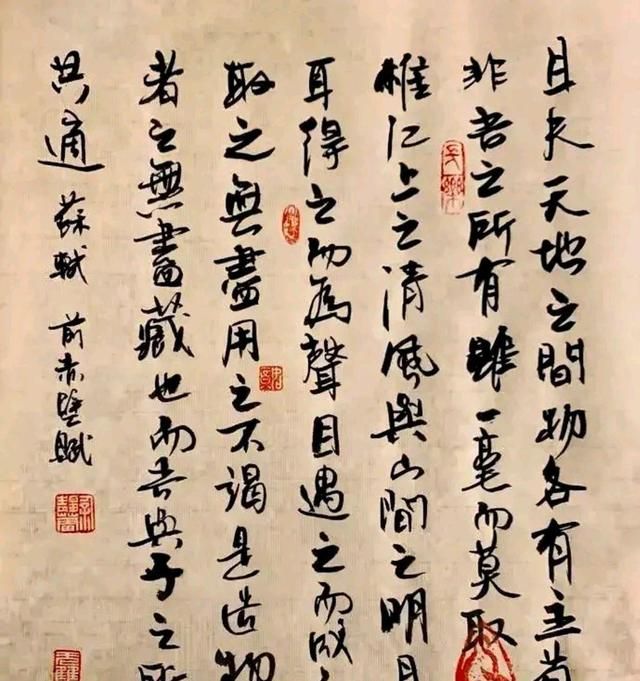 且夫天地之間物各有主苟
非吾之所有雖一毫而莫取
惟江上之清風與山間之明月
耳得之而為聲目遇之而成
取之無盡用之不竭是造物
者之無盡藏也而吾與子之所
共適 蘇軾 前赤壁賦